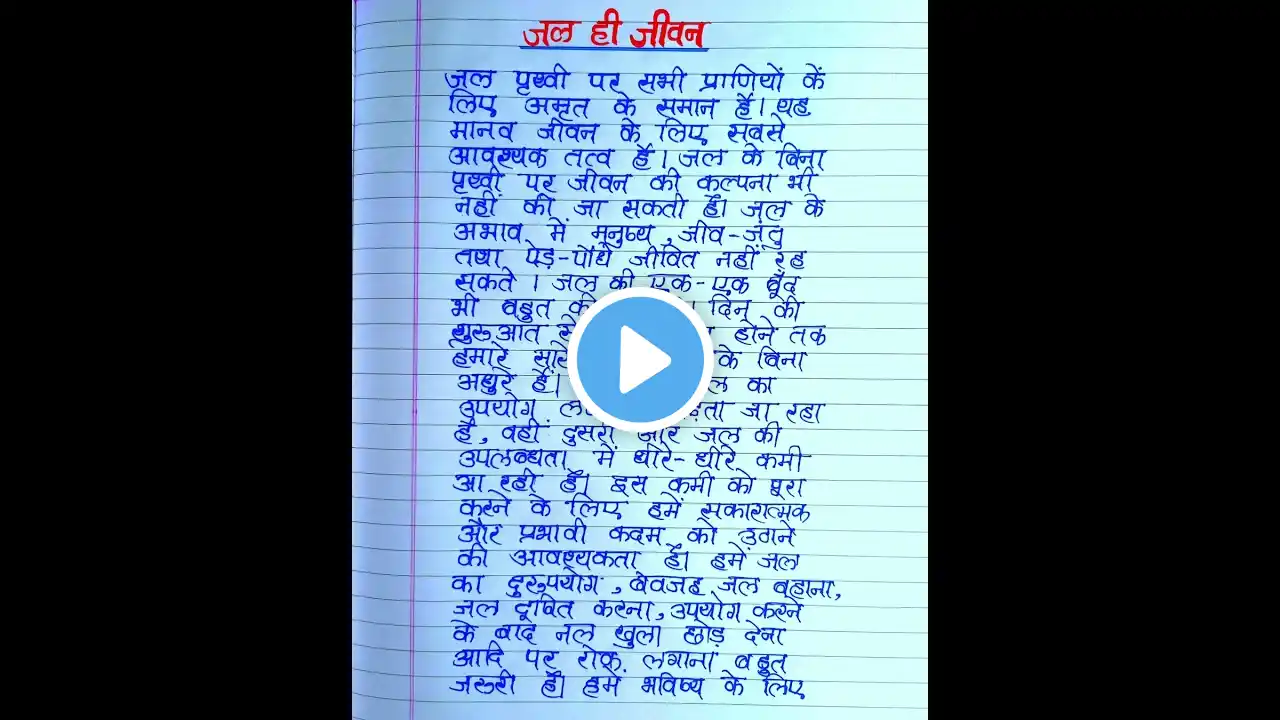 जल ही जीवन
जल पृथ्वी पर सभी प्राणियों कें
लिए अमृत के समान है। यह
मानव जीवन के लिए सबसे
आवश्यक तत्व है। जल के बिना
पृथ्वी पर जीवन की कल्पना भी
नहीं की जा सकती है। जल के
अभाव में मनुष्य, जीव-जंतु
तथा पेड़-पौधे जीवित नहीं रह
सकते। जल की एक-एक बूँद
भी बहुत दिन की
शुरुआत होने तक
हमारे के बिना
अधुरे हैं। का
उपयोग जा रहा
है, वहीं दुसरी ओर जल की
उपलब्धता में धीरे-धीरे कमी
आ रही है। इस कमी को पूरा
करने के लिए हमें सकारात्मक
और प्रभावी कदम को उठाने
की आवश्यकता है। हमें जल
का दुरुपयोग, बेवजह जल बहाना,
जल दूषित करना, उपयोग करने
के बाद नल खुला छोड़ देना
आदि पर रोक लगाना बहुत
जरुरी है। हमें भविष्य के लिए